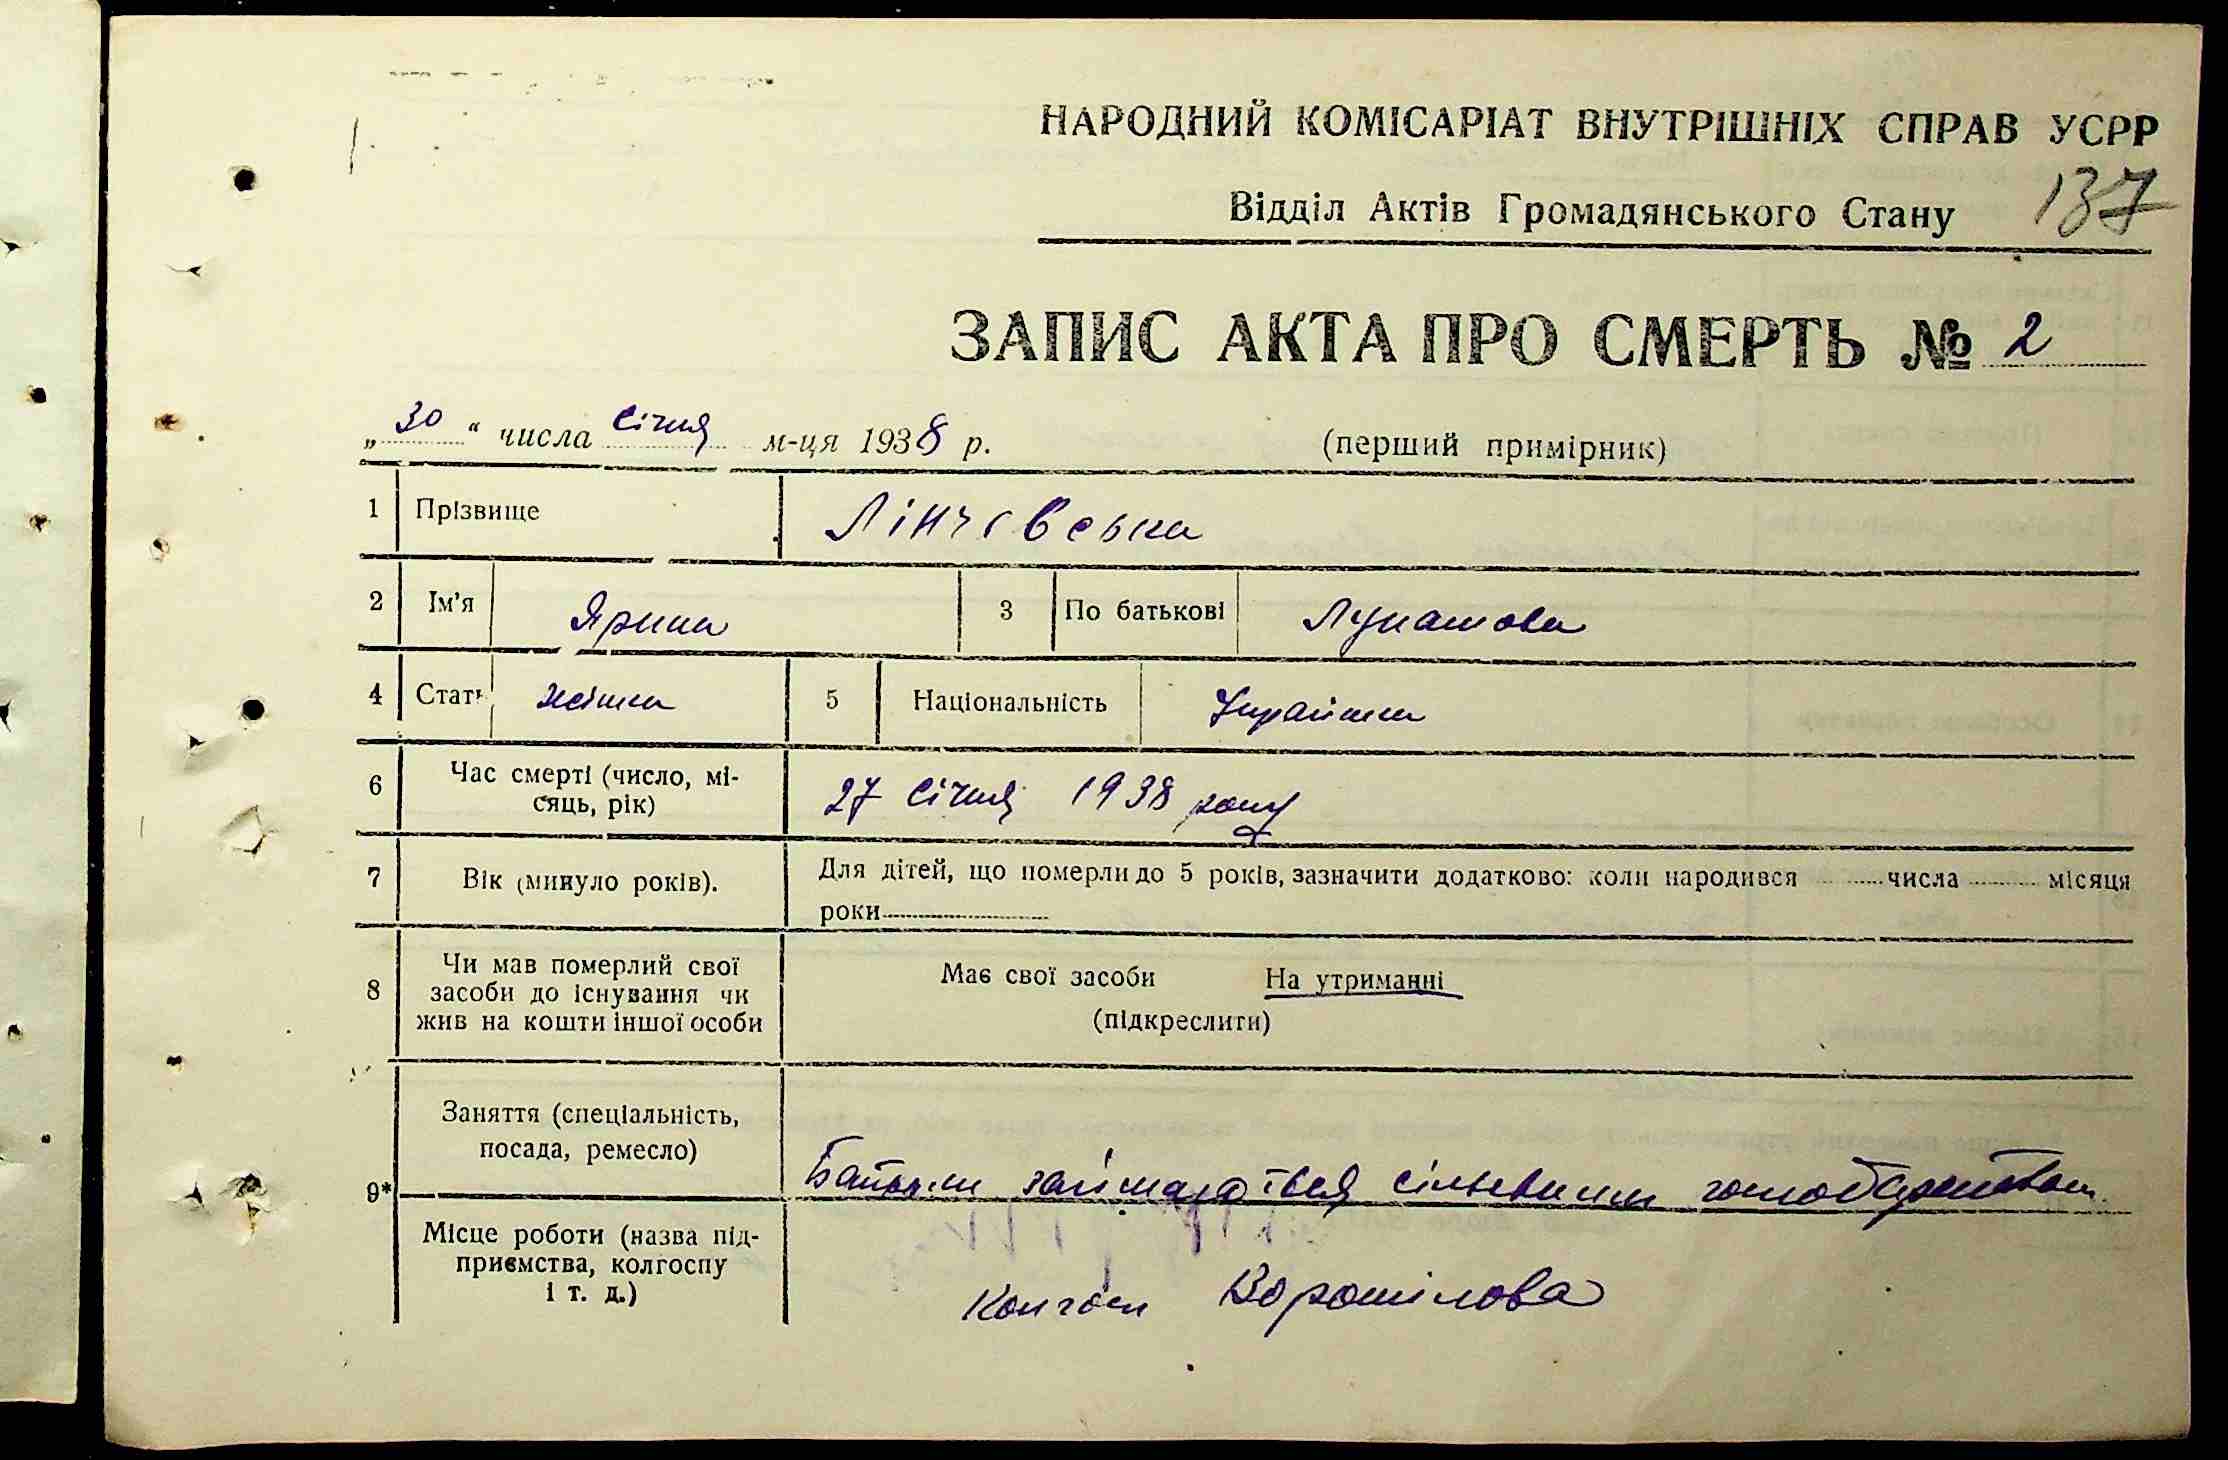 НАРОДНИЙ КОМІСАРІАТ ВНУТРІШНІХ СПРАВ УСРР
Відділ Актів Громадянського Стану 137
ЗАПИС АКТА ПРО СМЕРТЬ № 2
„30“ числа січня м-ця 1938 р. (перший примірник)
1 Прізвище Лінчевська
2 Ім'я Ярина 3 По батькові Лукашова
4 Стать жінка 5 Національність Українка
6 Час смерті (число, мі-
сяць, рік) 27 січня 1938 року
7 Вік (минуло років). Для дітей, що померли до 5 років, зазначити додатково: коли народився числа місяця
роки
8 Чи мав померлий свої
засоби до існування чи
жив на кошти іншої особи
Має свої засоби На утриманні
(підкреслити)
9* Заняття (спеціальність,
посада, ремесло) Батьки займаються сільським господарством
Місце роботи (назва під-
приємства, колгоспу
і т. д.) Колгосп Ворошилова